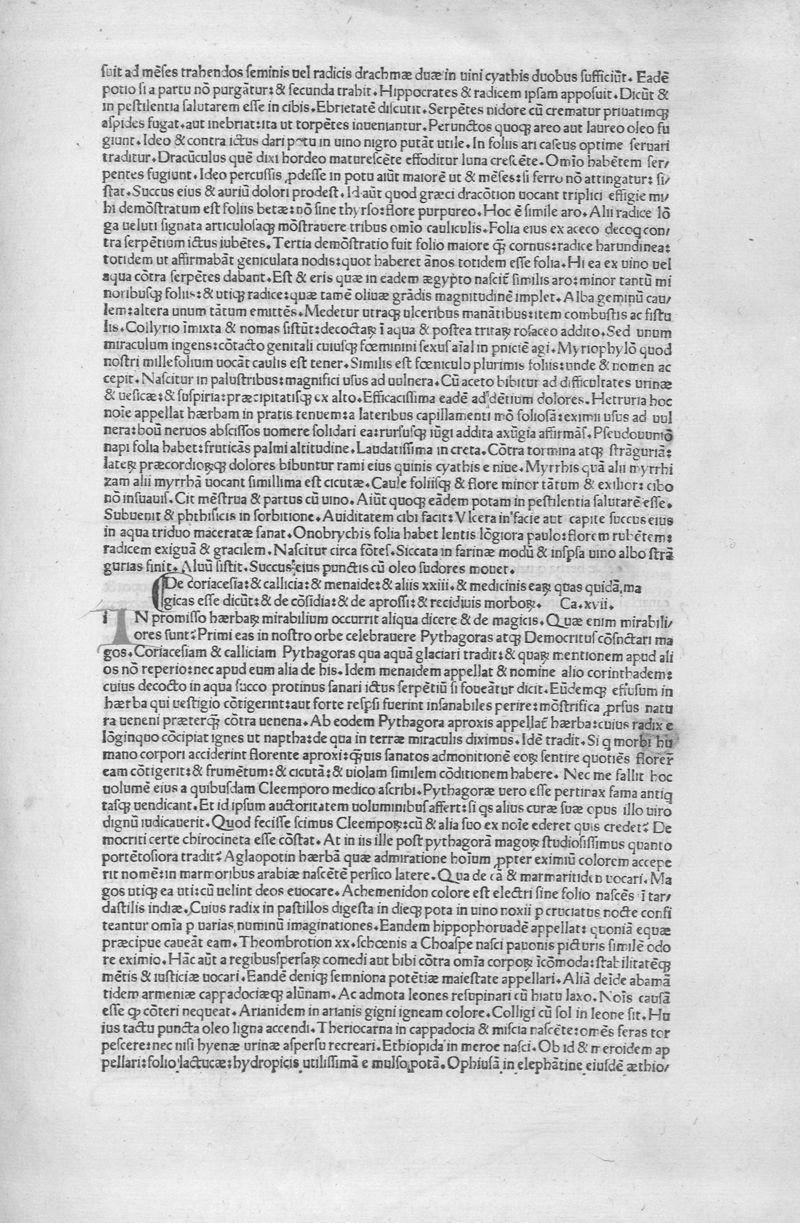 fuit ad mēſes trahendos ſeminis uel radicis drachmæ duæ in uini cyathis duobus ſufficiūt. Eadē
potio ſi a partu nō purgātur: & ſecunda trahit. Hippocrates & radicem ipſam appoſuit. Dicūt &
in peſtilentia ſalutarem eſſe in cibis. Ebrietatē diſcutit. Serpētes nidore cū crematur priuatimqꝫ
aſpides fugat. aut inebriat: ita ut torpētes inueniantur. Perunctos quoqꝫ areo aut laureo oleo fu
giunt. Ideo & contra ictus dari potu in uino nigro putāt utile. In foliis ari caſeus optime ſeruari
traditur. Dracūculus quē dixi hordeo matureſcēte effoditur luna creſcēte. Omīo habētem ſer/
pentes fugiunt. Ideo percuſſis ꝓdeſſe in potu aiūt maiorē ut & mēſes: ſi ferro nō attingatur: ſi/
ſtat. Succus eius & auriū dolori prodeſt. Id aūt quod græci dracōtion uocant triplici effigie mi/
hi demōſtratum eſt foliis betæ: nō ſine thyrſo: flore purpureo. Hoc ē ſimile aro. Alii radice lō
ga ueluti ſignata articuloſaqꝫ mōſtrauere tribus omīo cauliculis. Folia eius ex aceto decoq con/
tra ſerpētium ictus iubētes. Tertia demōſtratio fuit folio maiore q̄ꝫ cornus: radice harundinea:
totidem ut affirmabāt geniculata nodis: quot haberet ānos totidem eſſe folia. Hi ea ex uino uel
aqua cōtra ſerpētes dabant. Eſt & eris quæ in eadem ægypto naſcit̄ ſimilis aro: minor tantū mi
noribuſqꝫ foliis: & utiqꝫ radice: quæ tamē oliuæ grādis magnitudinē implet. Alba geminū cau/
lem: altera unum tātum emittēs. Medetur utraqꝫ ulceribus manātibus: item combuſtis ac fiſtu
lis. Collyrio īmixta & nomas ſiſtūt: decoctaꝝ ī aqua & poſtea tritaꝝ roſaceo addito. Sed unum
miraculum ingens: cōtacto genitali cuiuſqꝫ fœminini ſexuſ aīal in pniciē agi. Myriophylō quod
noſtri millefolium uocāt caulis eſt tener. Similis eſt fœniculo plurimis foliis: unde & nomen ac
cepit. Naſcitur in paluſtribus: magnifici uſus ad uulnera. Cū aceto bibitur ad difficultates urinæ
& ueſicæ: & ſuſpiria: præcipitatiſqꝫ ex alto. Efficaciſſima eadē ad dētium dolores. Hetruria hoc
noīe appellat hærbam in pratis tenuem: a lateribus capillamenti mō folioſā: eximii uſus ad uul
nera: boū neruos abſciſſos uomere ſolidari ea: rurſuſqꝫ iūgi addita axūgia affirmāſ. Pſeudouuniō
napi folia habet: fruticās palmi altitudine. Laudatiſſima in creta. Cōtra tormina atqꝫ ſtrāguriā:
lateꝝ præcordioꝝqꝫ dolores bibuntur rami eius quinis cyathis e niue. Myrrhis quā alii myrrhi
zam alii myrrhā uocant ſimillima eſt cicutæ. Caule foliiſqꝫ & flore minor tātum & exilior: cibo
nō inſuauis. Cit mēſtrua & partus cū uino. Aiūt quoqꝫ eādem potam in peſtilentia ſalutarē eſſe.
Subuenit & phthiſicis in ſorbitione. Auiditatem cibi facit: Vlcera in facie aut capite ſuccus eius
in aqua triduo maceratæ ſanat. Onobrychis folia habet lentis lōgiora paulo: florem rubētem:
radicem exiguā & gracilem. Naſcitur circa fōteſ. Siccata in farinæ modū & inſpſa uino albo ſtrā
gurias finit. Aluū ſiſtit. Succus eius punctis cū oleo ſudores mouet.
De coriaceſia: & callicia: & menaide: & aliis xxiii. & medicinis eaꝝ quas quidā ma
gicas eſſe dicūt: & de cōſidia: & de aproſſi: & recidiuis morboꝝ. Ca. xvii.
IN promiſſo hærbaꝝ mirabilium occurrit aliqua dicere & de magicis. Quæ enim mirabili/
ores ſunt? Primi eas in noſtro orbe celebrauere Pythagoras atqꝫ Democrituſ cōſectari ma
gos. Coriaceſiam & calliciam Pythagoras qua aquā glaciari tradit: & quaꝝ mentionem apud ali
os nō reperio: nec apud eum alia de his. Idem menaidem appellat & nomine alio corinthadem:
cuius decocto in aqua ſucco protinus ſanari ictus ſerpētiū ſi foueātur dicit. Eūdemqꝫ effuſum in
hærba qui ueſtigio cōtigerint: aut forte reſpſi fuerint inſanabiles perire: mōſtrifica ꝓrſus natu
ra ueneni præterq̄ꝫ cōtra uenena. Ab eodem Pythagora aproxis appellat̄ hærba: cuius radix e
lōginquo cōcipiat ignes ut naptha: de qua in terræ miraculis diximus. Idē tradit. Si q morbi hu
mano corpori acciderint florente aproxi: q̄ꝫuis ſanatos admonitionē eoꝝ ſentire quotiēs florer
eam cōtigerit: & frumētum: & cicutā: & uiolam ſimilem cōditionem habere. Nec me fallit hoc
uolumē eius a quibuſdam Cleemporo medico aſcribi. Pythagoræ uero eſſe pertinax fama antiq
taſqꝫ uendicant. Et id ipſum auctoritatem uoluminibuſ affert: ſi qs alius curæ ſuæ opus illo uiro
dignū iudicauerit. Quod feciſſe ſcimus Cleempoꝝ: cū & alia ſuo ex noīe ederet quis credet? De
mocriti certe chirocineta eſſe cōſtat. At in iis ille poſt pythagorā magoꝝ ſtudioſiſſimus quanto
portētoſiora tradit? Aglaopotin hærbā quæ admiratione hoīum ꝓpter eximiū colorem accepe
rit nomē: in marmoribus arabiæ naſcētē perſico latere. Qua de cā & marmaritiden uocari. Ma
gos utiqꝫ ea uti: cū uelint deos euocare. Achemenidon colore eſt electri ſine folio naſcēs ī tar/
daſtilis indiæ. Cuius radix in paſtillos digeſta in dieqꝫ pota in uino noxii p cruciatus nocte confi
teantur omīa p uarias numinū imaginationes. Eandem hippophouadē appellat: quoniā equæ
præcipue caueāt eam. Theombrotion xx. ſchœnis a Choaſpe naſci pauonis picturis ſimilē odo
re eximio. Hāc aūt a regibuſ perſaꝝ comedi aut bibi cōtra omīa corpoꝝ īcōmoda: ſtabilitatēqꝫ
mētis & iuſticiæ uocari. Eandē deniqꝫ ſemniona potētiæ maieſtate appellari. Aliā deīde abamā
tidem armeniæ cappadociæqꝫ alūnam. Ac admota leones reſupinari cū hiatu laxo. Noīs cauſā
eſſe qꝫ cōteri nequeat. Arianidem in arianis gigni igneam colore. Colligi cū ſol in leone ſit. Hu
ius tactu puncta oleo ligna accendi. Theriocarna in cappadocia & miſcia naſcēte: omēs feras tor
peſcere: nec niſi hyenæ urinæ aſperſu recreari. Ethiopida in meroe naſci. Ob id & meroidem ap
pellari: folio lactucæ: hydropicis utiliſſimā e mulſo potā. Ophiuſā in elephātine eiuſdē æthio/